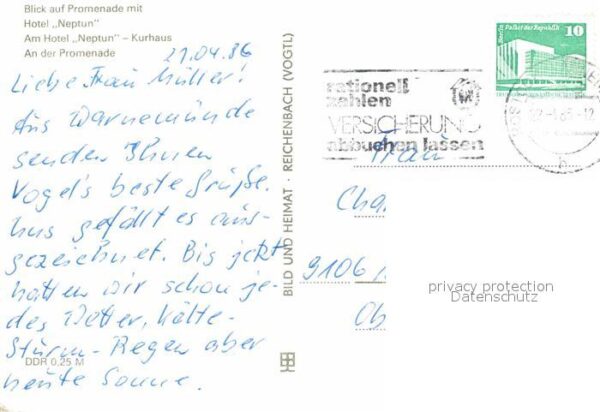 Blick auf Promenade mit
Hotel „Neptun"
Am Hotel „Neptun" – Kurhaus
An der Promenade
21.04.86
Liebe Frau Müller!
Aus Warnemünde
senden Ihnen
Vogel's beste Grüße.
Uns gefällt es aus-
gezeichnet. Bis jetzt
hatten wir schon je-
des Wetter, Kälte-
Sturm-Regen aber
heute Sonne.
DDR 0,25 M
BILD UND HEIMAT · REICHENBACH (VOGTL)
Berlin, Palast der Republik
10
rationell
zahlen
VERSICHERUNG
abbuchen lassen
Frau
Cha
9106
privacy protection
Datenschutz